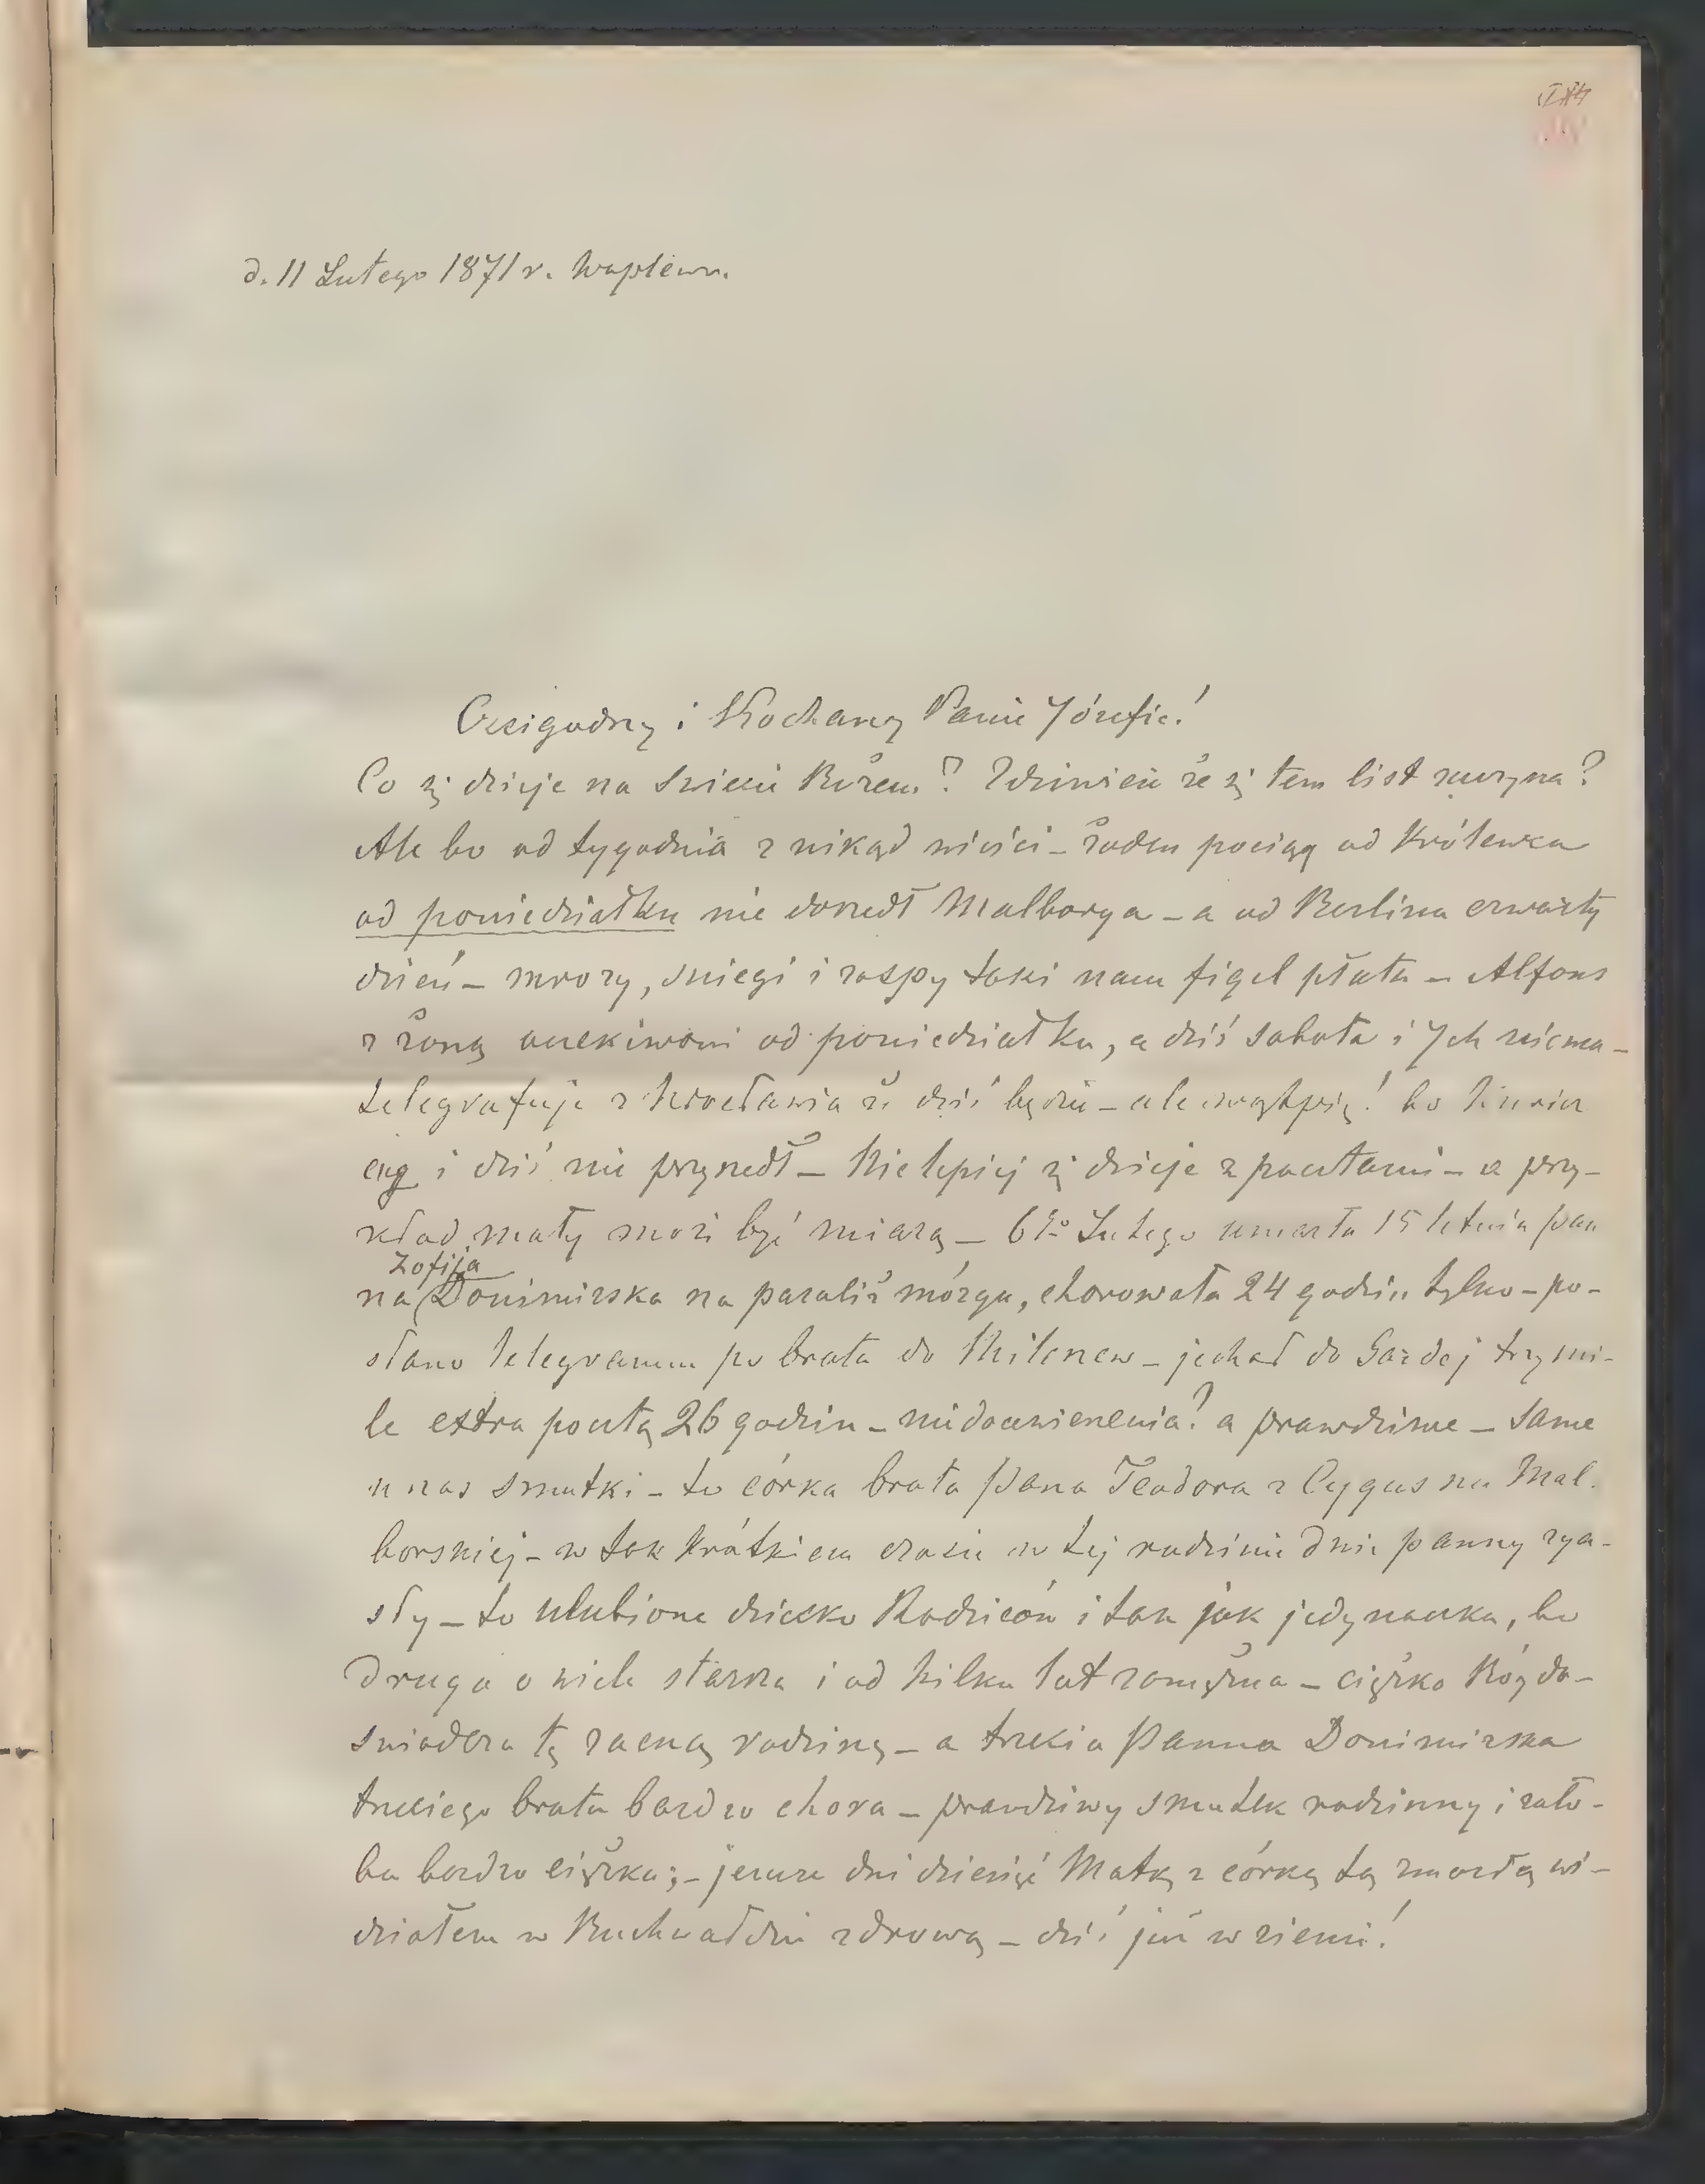 d. 11 Lutego 1871 r. Waplewo.
Czcigodny i Kochany Panie Józefie!
Co się dzieje na świecie Bożem? Zdziwicie że się tem list zaczyna?
Ale bo od tygodnia z nikąd wieści – żaden pociąg od Królewca
od poniedziałku nie doszedł Malborga – a od Berlina czwarty
dzień – mrozy, śniegi i zaspy taki nam figel płata – Alfons
z żoną oczekiwani od poniedziałku, a dziś sobota i Ich niema –
telegrafuje z Wrocławia że dziś będzie – ale wątpię! bo
i dziś nie przyszedł – Nielepiej się dzieje z pocztami – a przy-
kład mały może być miarą – 6go Lutego umarła 15 letnia pan
na Zofija Donimirska na paraliż mózgu, chorowała 24 godzin tylko – po-
słano telegramm po brata do – jechał do Gardej trzy mi-
le extra pocztą 26 godzin – niedouwierzenia! a prawdziwe – Same
u nas smutki – to córka brata Pana Teodora z Cygus na Mal-
borskiej – w tak krótkiem czasie w tej rodzinie dwie panny zga-
sły – to ulubione dziecko Rodziców i tak jak jedynaczka, bo
druga o wiele starsza i od kilku lat zamężna – ciężko Bóg do-
świadcza tę zacną rodzinę – a trzecia Panna Donimirska
trzeciego brata bardzo chora – prawdziwy smutek rodzinny i żało-
ba bardzo ciężka; – jeszcze dni dziesięć Matkę z córką tą zmarłą wi-
działem w Buchwałdzie zdrową – dziś już w ziemi!